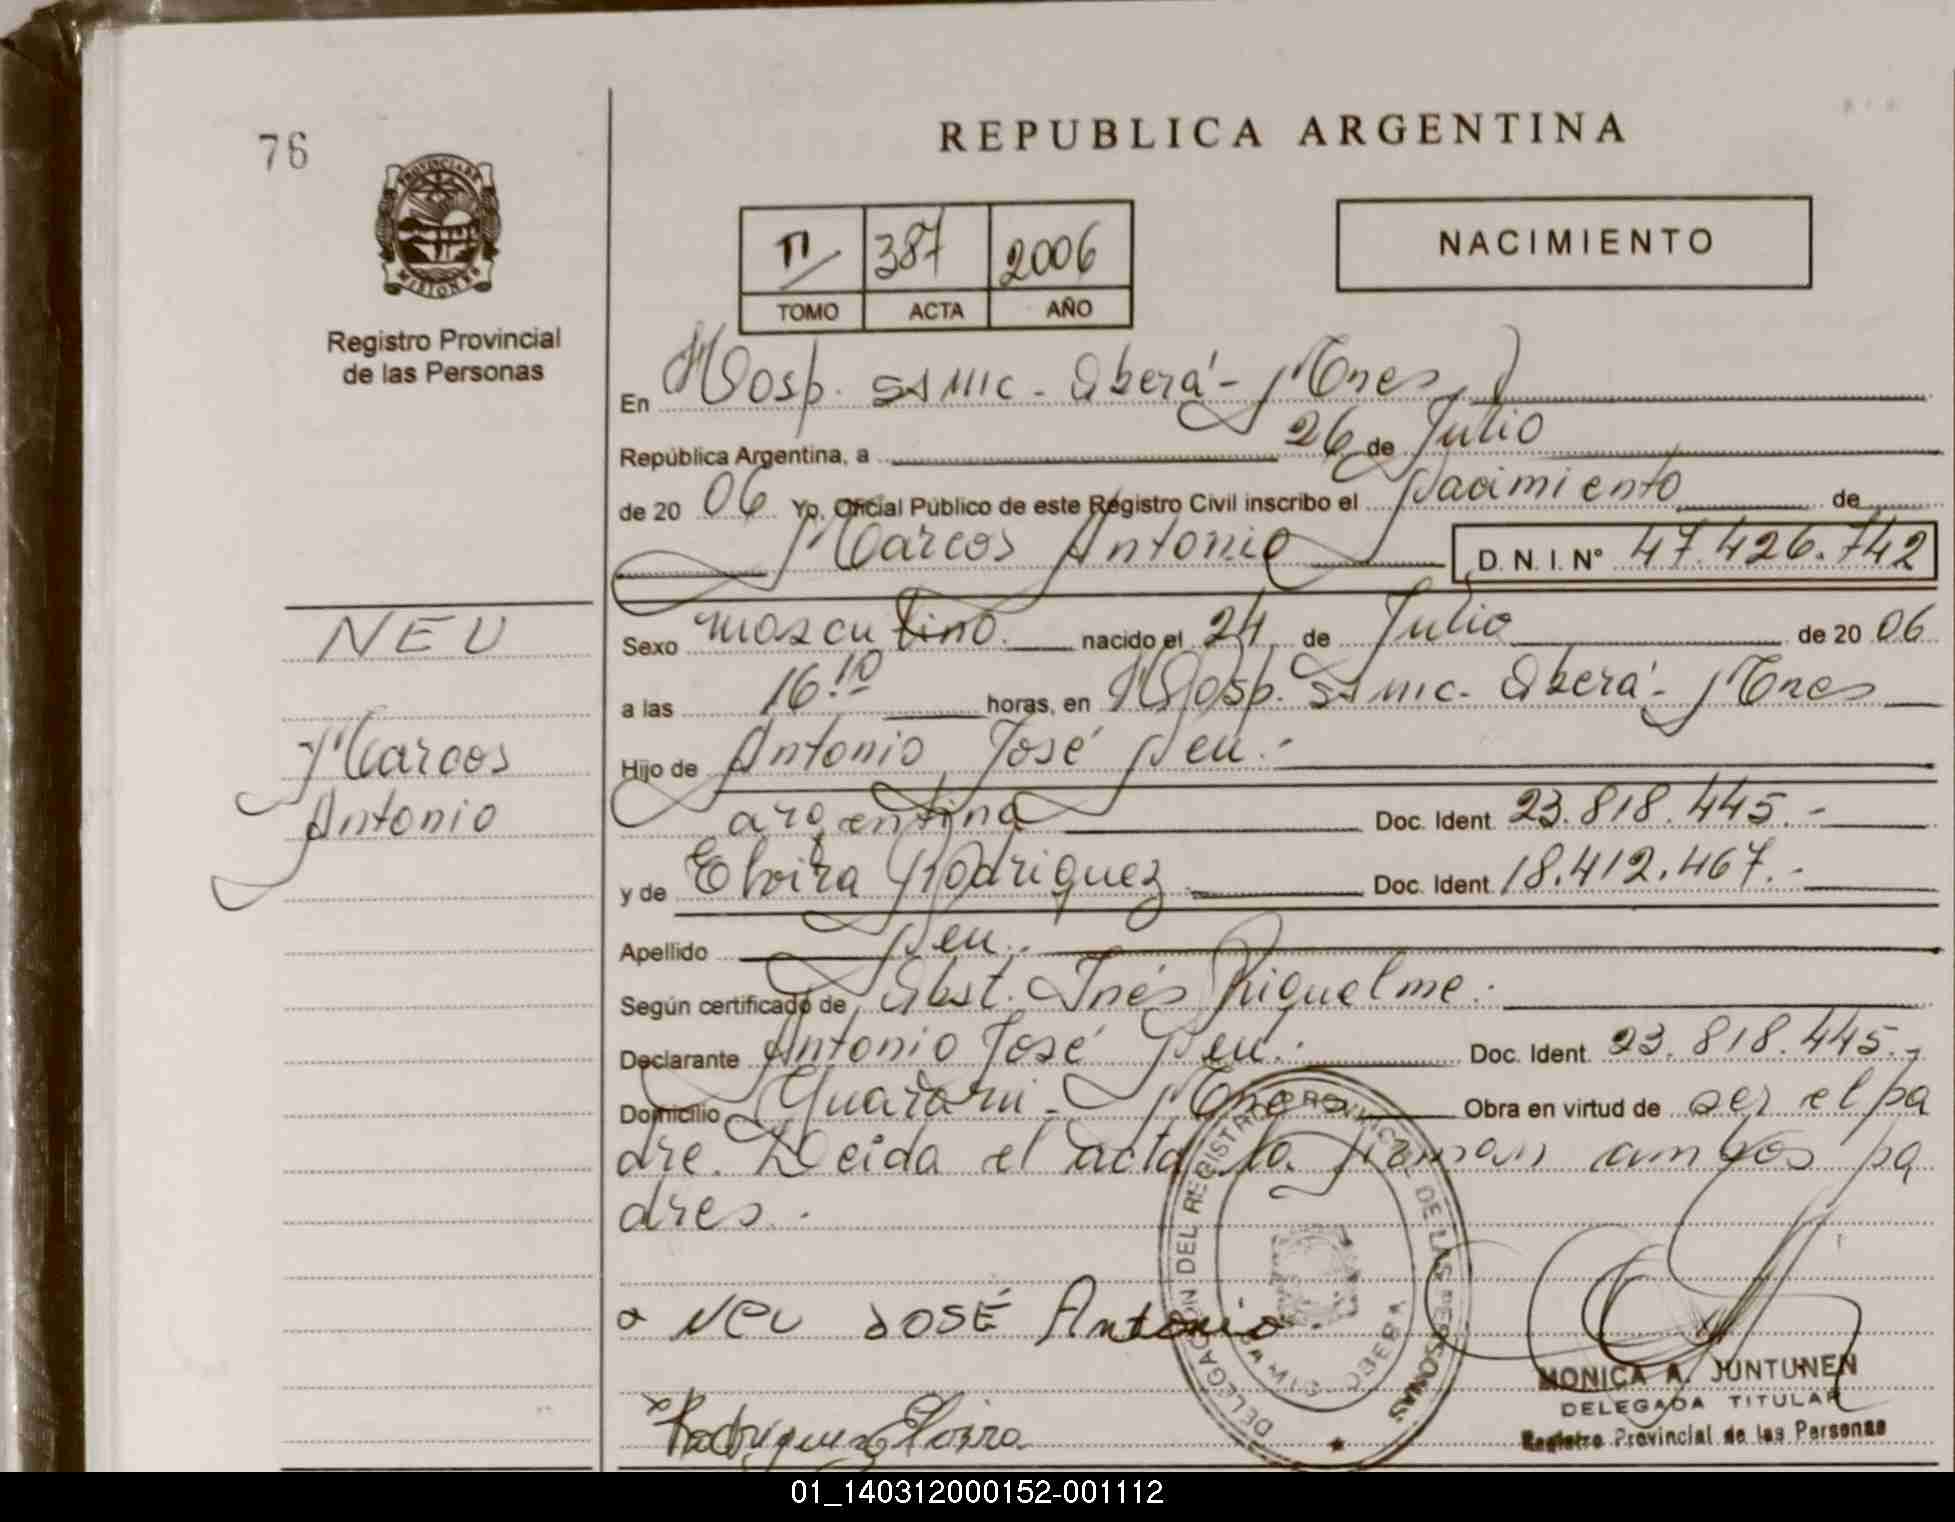 76
PROVINCIA DE
MISIONES
Registro Provincial
de las Personas
REPUBLICA ARGENTINA
II 387 2006
TOMO ACTA AÑO
NACIMIENTO
En Hosp. SAMIC - Oberá - Mnes
República Argentina, a 26 de Julio
de 20 06 Yo, Oficial Público de este Registro Civil inscribo el Nacimiento de
Marcos Antonio D. N. I. N° 47.426.742
NEU
Sexo masculino. nacido el 24 de Julio de 20 06
a las 16.10 horas, en Hosp. SAMIC - Oberá - Mnes
Marcos
Hijo de Antonio José Neu.-
Antonio
argentina Doc. Ident. 23.818.445.-
y de Elvira Rodriguez.- Doc. Ident. 18.412.467.-
Apellido Neu.-
Según certificado de Obst. Inés Riquelme.-
Declarante Antonio José Neu.- Doc. Ident. 23.818.445.-
Domicilio Guaraní - Mnes Obra en virtud de ser el pa
dre. Leida el acta la firman ambos pa
dres.-
NEU JOSÉ Antonio
DELEGACION DEL REGISTRO PROVINCIAL DE LAS PERSONAS
OBERA
Rodriguez Elvira
MONICA A. JUNTUNEN
DELEGADA TITULAR
Registro Provincial de las Personas
01_140312000152-001112